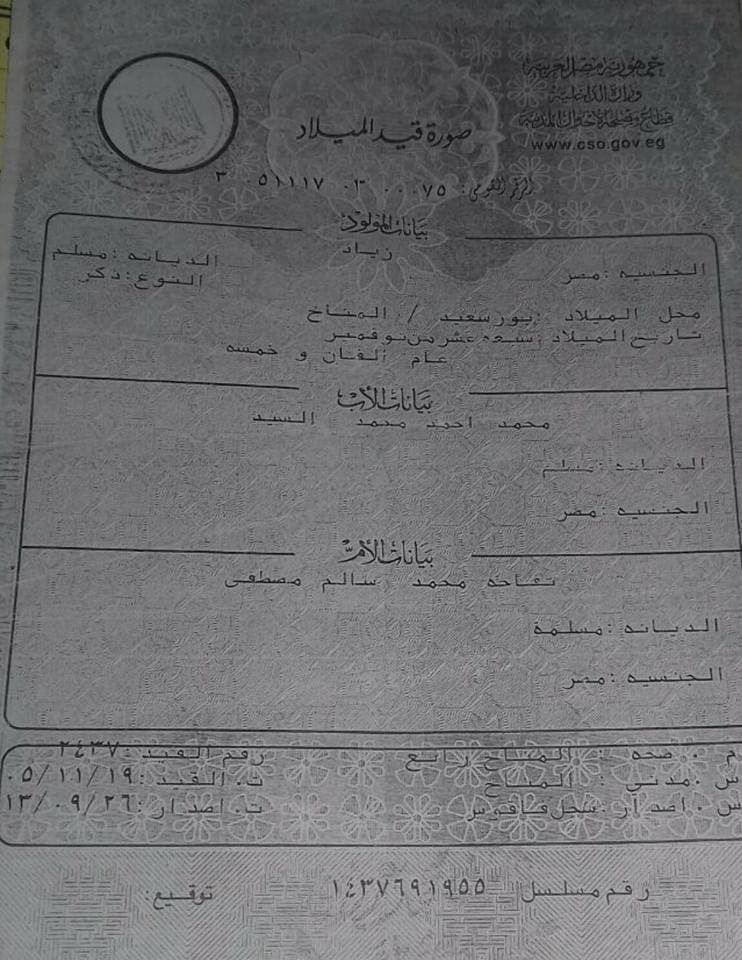 جمهورية مصر العربية
وزارة الداخلية
قطاع مصلحة الأحوال المدنية
www.cso.gov.eg
صورة قيد الميلاد
الرقم القومى: ٣ ٠٥١١١٧ ٠٣ ٠٠٠٧٥
بيانات المولود
زياد
الجنسيه : مصر الديانه : مسلم
النوع : ذكر
محل الميلاد : بورسعيد / المناخ
تاريخ الميلاد : سبعه عشر من نوفمبر
عام الفان و خمسه
بيانات الأب
محمد احمد محمد السيد
الديانه : مسلم
الجنسيه : مصر
بيانات الأم
تفاحه محمد سالم مصطفى
الديانه : مسلمة
الجنسيه : مصر
م . صحه : المناخ رابع رقم القيد : ٢٤٣٧
س . مدنى : المناخ ت . القيد : ٠٥/١١/١٩
س . اصدار : سجل فاقوس ت . اصدار : ١٣/٠٩/٢٦
رقم مسلسل ١٤٣٧٦٩١٩٥٥ توقيع :